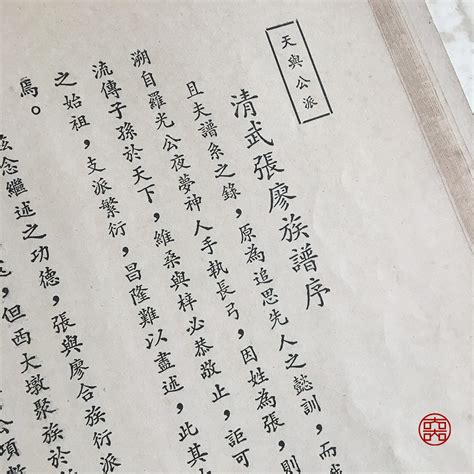 天與公派
清武張廖族譜序
且夫譜系之錄，原為追思先人之懿訓，而
溯自羅光公夜夢神人手執長弓，因姓為張，則
流傳子孫於天下，維桑與梓必恭敬止，詎可
之始祖，支派繁衍，昌隆難以盡述，此其大
焉。
念繼述之功德，張與廖合族衍派
，但西大墩聚族於